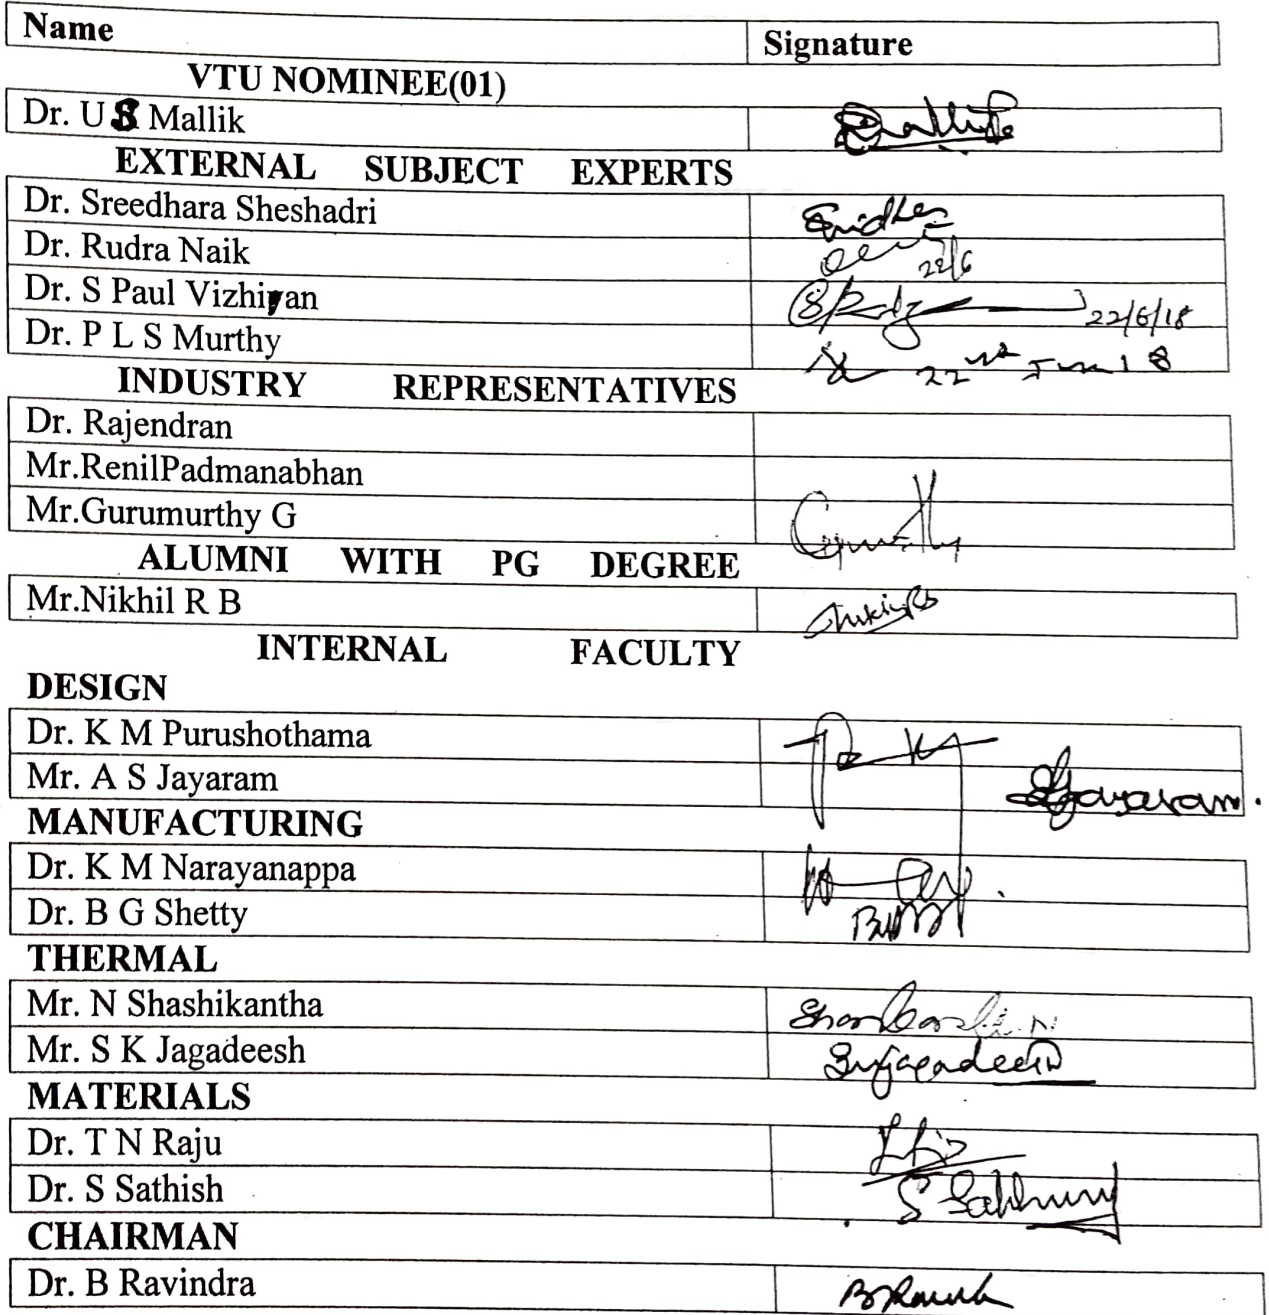 Name Signature
VTU NOMINEE(01)
Dr. U S Mallik
EXTERNAL SUBJECT EXPERTS
Dr. Sreedhara Sheshadri Sridhar
Dr. Rudra Naik 22/6
Dr. S Paul Vizhiyan 22/6/18
Dr. P L S Murthy 22nd June 18
INDUSTRY REPRESENTATIVES
Dr. Rajendran
Mr.RenilPadmanabhan
Mr.Gurumurthy G
ALUMNI WITH PG DEGREE
Mr.Nikhil R B
INTERNAL FACULTY
DESIGN
Dr. K M Purushothama
Mr. A S Jayaram Jayaram.
MANUFACTURING
Dr. K M Narayanappa
Dr. B G Shetty
THERMAL
Mr. N Shashikantha
Mr. S K Jagadeesh SKJagadeesh
MATERIALS
Dr. T N Raju
Dr. S Sathish
CHAIRMAN
Dr. B Ravindra